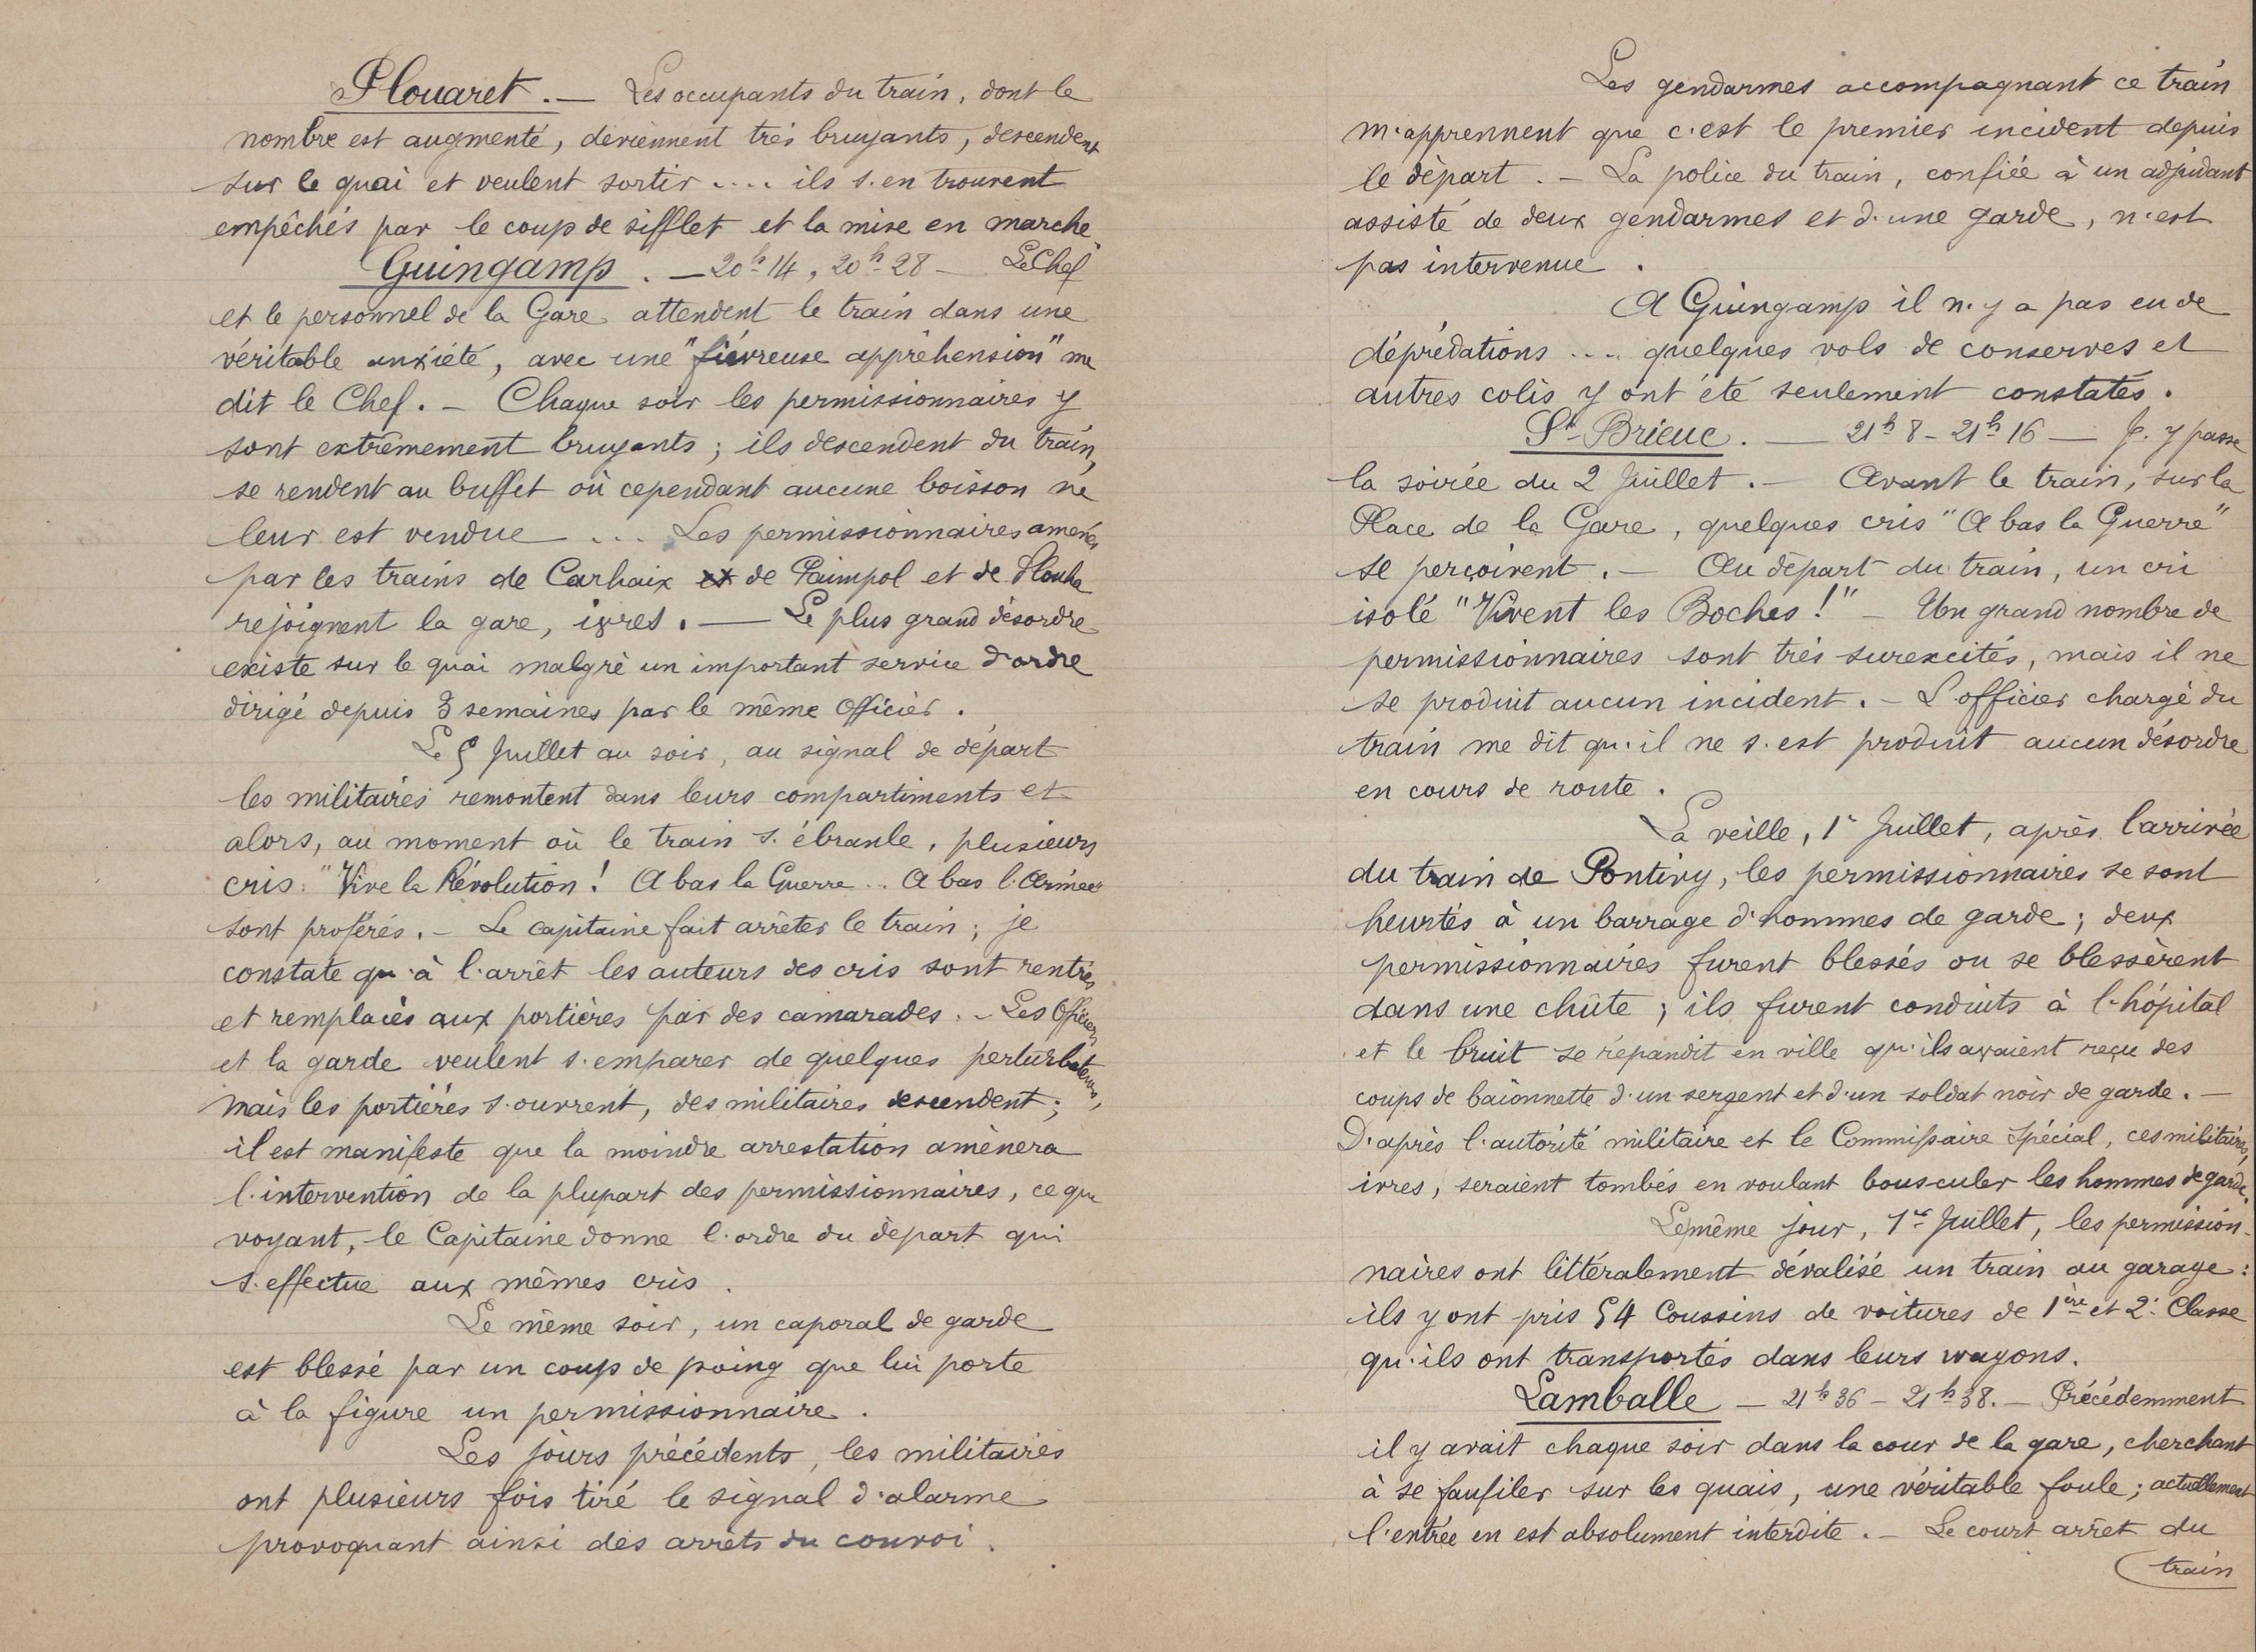 Plouaret. — Les occupants du train, dont le
nombre est augmenté, deviennent très bruyants, descendent
sur le quai et veulent sortir .... ils s'en trouvent
empêchés par le coup de sifflet et la mise en marche
Guingamp. — 20h 14, 20h 28 — Le Chef
et le personnel de la Gare attendent le train dans une
véritable anxiété, avec une "fiévreuse appréhension" me
dit le Chef. — Chaque soir les permissionnaires y
sont extrêmement bruyants ; ils descendent du train,
se rendent au buffet où cependant aucune boisson ne
leur est vendue ... Les permissionnaires amenés
par les trains de Carhaix et de Paimpol et de Plouha
rejoignent la gare, ivres. — Le plus grand désordre
existe sur le quai malgré un important service d'ordre
dirigé depuis 3 semaines par le même Officier.
Le 5 Juillet au soir, au signal de départ
les militaires remontent dans leurs compartiments et
alors, au moment où le train s'ébranle, plusieurs
cris : "Vive la Révolution ! A bas la Guerre .. A bas l'Armée"
sont proférés. — Le capitaine fait arrêter le train ; je
constate qu'à l'arrêt les auteurs des cris sont rentrés
et remplacés aux portières par des camarades. — Les Officiers
et la garde veulent s'emparer de quelques perturbateurs,
mais les portières s'ouvrent, des militaires descendent ;
il est manifeste que la moindre arrestation amènera
l'intervention de la plupart des permissionnaires, ce que
voyant, le Capitaine donne l'ordre du départ qui
s'effectue aux mêmes cris.
Le même soir, un caporal de garde
est blessé par un coup de poing que lui porte
à la figure un permissionnaire.
Les jours précédents, les militaires
ont plusieurs fois tiré le signal d'alarme
provoquant ainsi des arrêts du convoi.
Les gendarmes accompagnant ce train
m'apprennent que c'est le premier incident depuis
le départ. — La police du train, confiée à un adjudant
assisté de deux gendarmes et d'une garde, n'est
pas intervenue.
A Guingamp il n'y a pas eu de
déprédations .... quelques vols de conserves et
autres colis y ont été seulement constatés.
St-Brieuc. — 21h 8 - 21h 16 — J'y passe
la soirée du 2 Juillet. — Avant le train, sur la
Place de la Gare, quelques cris "A bas la Guerre"
se perçoivent. — Au départ du train, un cri
isolé "Vivent les Boches !" — Un grand nombre de
permissionnaires sont très surexcités, mais il ne
se produit aucun incident. — L'officier chargé du
train me dit qu'il ne s'est produit aucun désordre
en cours de route.
La veille, 1r Juillet, après l'arrivée
du train de Pontivy, les permissionnaires se sont
heurtés à un barrage d'hommes de garde ; deux
permissionnaires furent blessés ou se blessèrent
dans une chûte ; ils furent conduits à l'hôpital
et le bruit se répandit en ville qu'ils avaient reçu des
coups de baïonnette d'un sergent et d'un soldat noir de garde. —
D'après l'autorité militaire et le Commissaire Spécial, ces militaires,
ivres, seraient tombés en voulant bousculer les hommes de garde.
Le même jour, 1er Juillet, les permission-
naires ont littéralement dévalisé un train au garage :
ils y ont pris 54 Coussins de voitures de 1ère et 2e Classe
qu'ils ont transportés dans leurs wagons.
Lamballe — 21h 36 - 21h 38. — Précédemment
il y avait chaque soir dans la cour de la gare, cherchant
à se faufiler sur les quais, une véritable foule ; actuellement
l'entrée en est absolument interdite. — Le court arrêt du
train